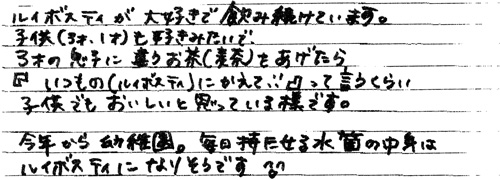 ルイボスティが大好きで飲み続けています。
子供(3才、1才)も好きみたいで、
3才の息子に違うお茶(麦茶)をあげたら
『いつもの(ルイボスティ)にかえて!!』って言うくらい
子供でもおいしいと思っている様です。
今年から幼稚園。毎日持たせる水筒の中身は
ルイボスティになりそうです